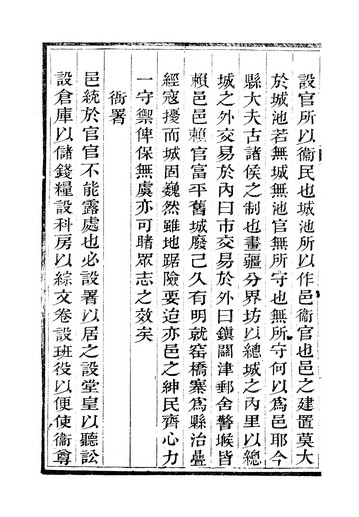 設官所以衞民也城池所以作邑衞官也邑之建置莫大
於城池若無城無池官無所守也無所守何以爲邑耶今
縣大夫古諸侯之制也畫疆分界坊以總城之內里以總
城之外交易於內曰市交易於外曰鎭關津郵舍警堠皆
賴邑邑賴官富平舊城廢己久有明就窑橋寨爲縣治疊
經寇擾而城固巍然雖地踞險要迫亦邑之紳民齊心力
一守禦俾保無虞亦可睹眾志之效矣
衙署
邑統於官官不能露處也必設署以居之設堂皇以聽訟
設倉庫以儲錢糧設科房以綜文卷設班役以便使衞尊